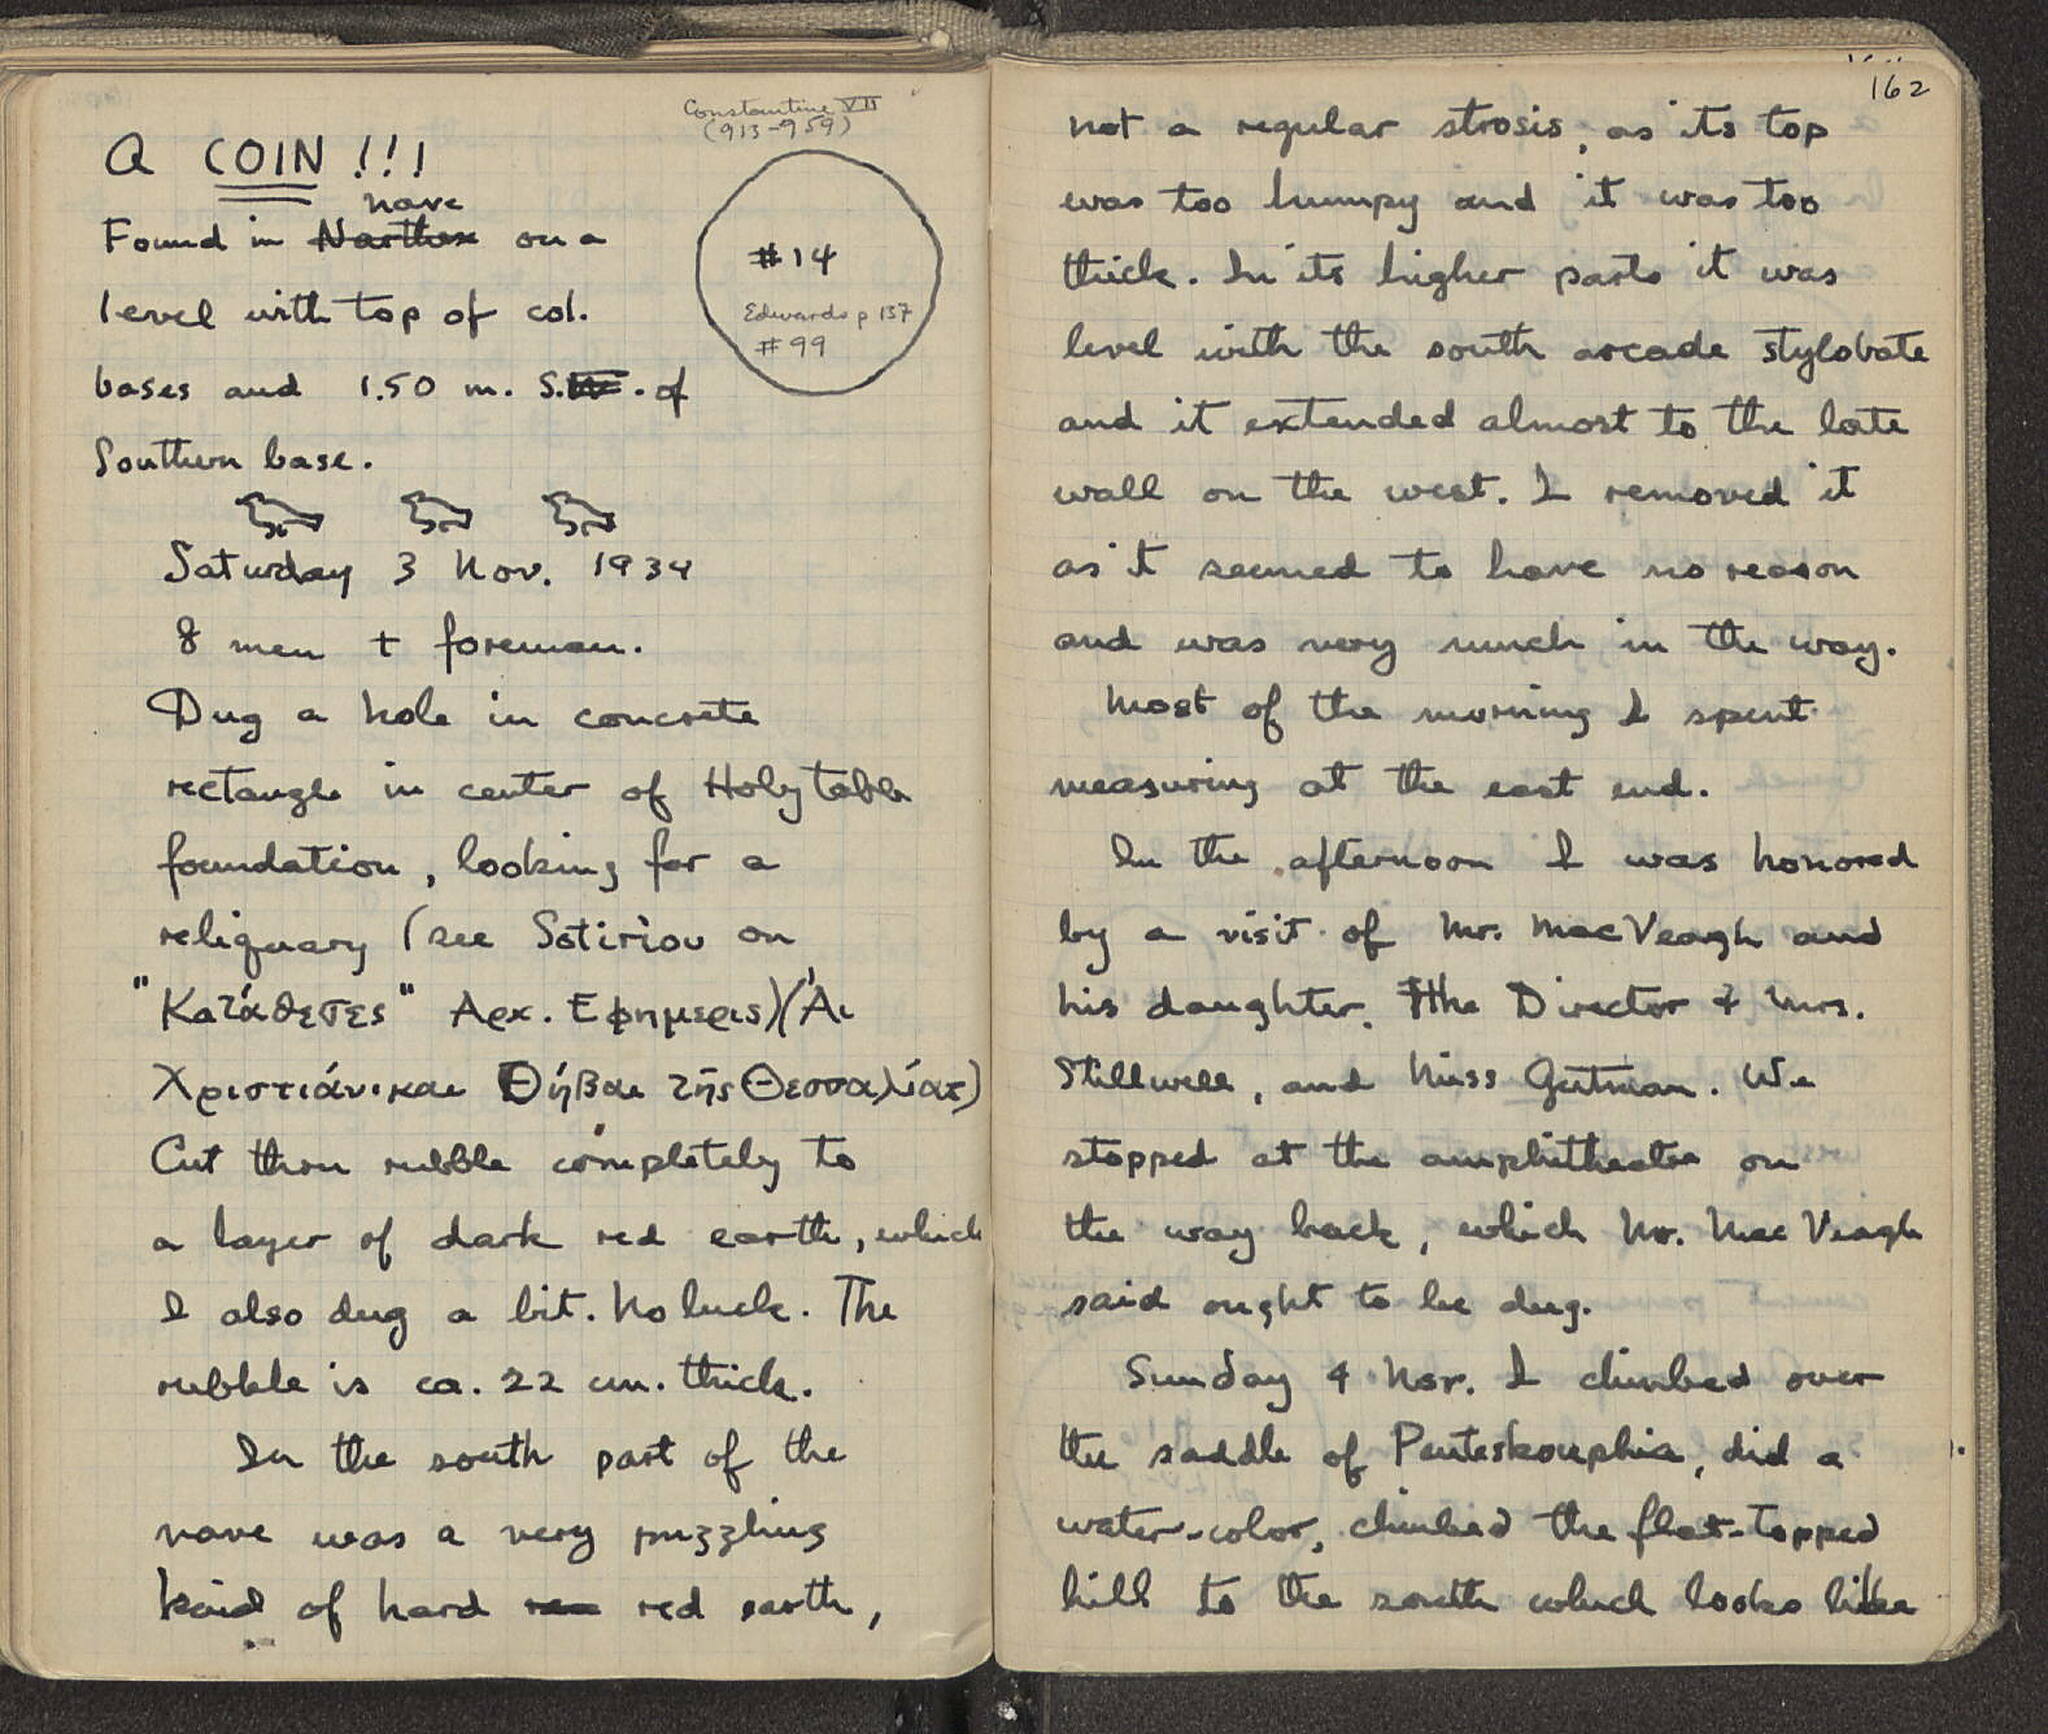 Constantine VII
(913-959)
A COIN!!!
nave
Found in Narthex on a
level with top of col.
bases and 1.50 m. S.W. of
Southern base.
#14
Edwards p 137
#99
Saturday 3 Nov. 1934
8 men + foreman.
Dug a hole in concrete
rectangle in center of Holy table
foundation, looking for a
reliquary (see Sotiriou on
"Κατάθεσες" Αρχ. Εφημερις)(Ἁι
Χριστιάνικαι Θήβαι τῆς Θεσσαλίας)
Cut thru rubble completely to
a layer of dark red earth, which
I also dug a bit. No luck. The
rubble is ca. 22 cm. thick.
In the south part of the
nave was a very puzzling
kind of hard red earth,
162
not a regular strosis, as its top
was too humpy and it was too
thick. In its higher parts it was
level with the south arcade stylobate
and it extended almost to the late
wall on the west. I removed it
as it seemed to have no reason
and was very much in the way.
Most of the morning I spent
measuring at the east end.
In the afternoon I was honored
by a visit of Mr. MacVeagh and
his daughter, the Director & Mrs.
Stillwell, and Miss Gutman. We
stopped at the amphitheatre on
the way back, which Mr. MacVeagh
said ought to be dug.
Sunday 4 Nov. I climbed over
the saddle of Penteskouphia, did a
water-color, climbed the flat-topped
hill to the south which looks like